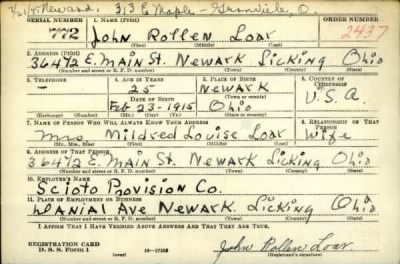 Newark. 313 E Maple - Granville, O.
SERIAL NUMBER 1. NAME (Print) ORDER NUMBER
772 John Rollen Loar 2437
(First) (Middle) (Last)
2. ADDRESS (Print)
364½ E. Main St. Newark Licking Ohio
(Number and street or R. F. D. number) (Town) (County) (State)
3. TELEPHONE 4. AGE IN YEARS 5. PLACE OF BIRTH 6. COUNTRY OF CITIZENSHIP
25 Newark
DATE OF BIRTH (Town or county)
Feb 23-1915 Ohio U.S.A.
(Exchange) (Number) (Mo.) (Day) (Yr.) (State or country)
7. NAME OF PERSON WHO WILL ALWAYS KNOW YOUR ADDRESS 8. RELATIONSHIP OF THAT PERSON
Mrs Mildred Louise Loar Wife
(Mr., Mrs., Miss) (First) (Middle) (Last)
9. ADDRESS OF THAT PERSON
364½ E. Main St. Newark Licking Ohio
(Number and street or R. F. D. number) (Town) (County) (State)
10. EMPLOYER'S NAME
Scioto Provision Co.
11. PLACE OF EMPLOYMENT OR BUSINESS
Danial Ave Newark. Licking Ohio
(Number and street or R. F. D. number) (Town) (County) (State)
I AFFIRM THAT I HAVE VERIFIED ABOVE ANSWERS AND THAT THEY ARE TRUE.
REGISTRATION CARD
D. S. S. Form 1 16-17105 John Rollen Loar
(Registrant's signature)